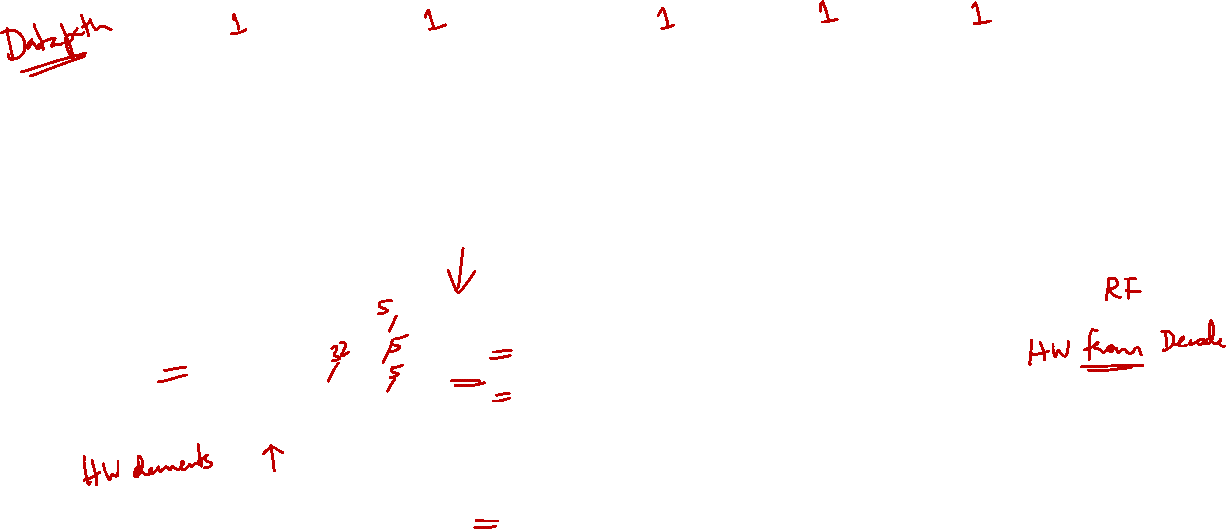 Datapath 1 1 1 1 1
RF
5
32 5
HW from Decode
5
HW elements ↑